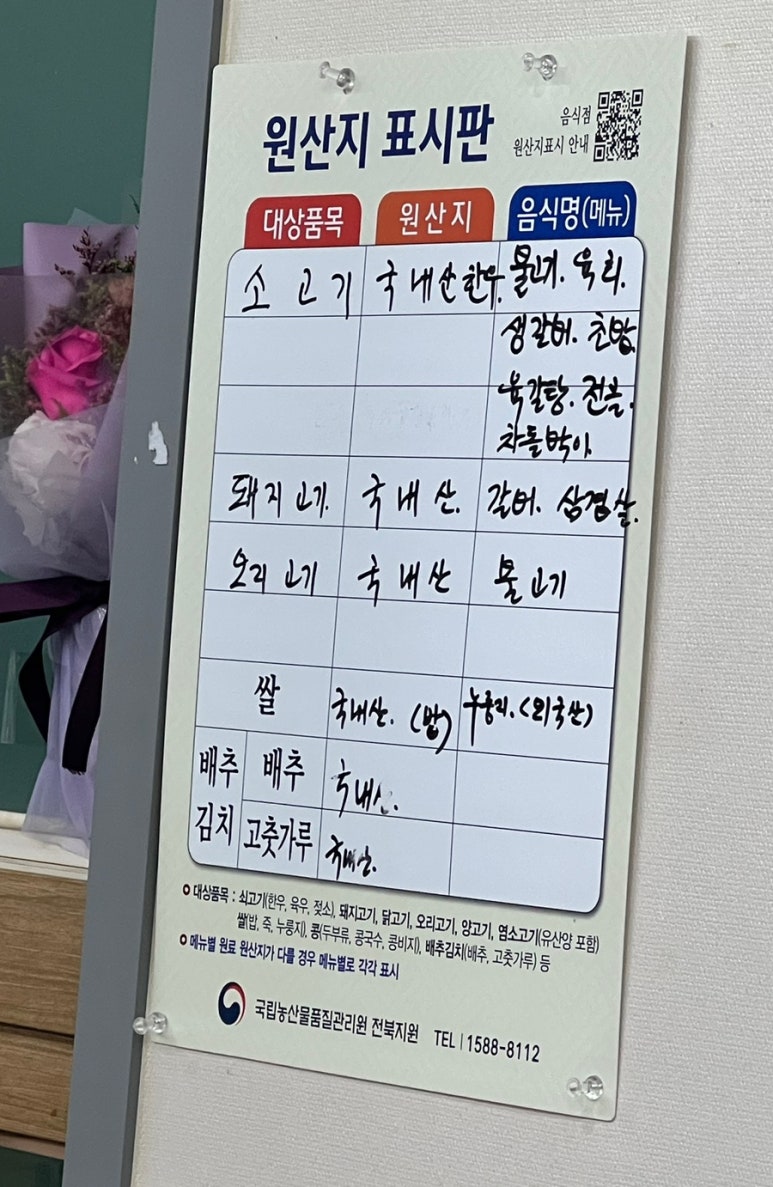 원산지 표시판
음식점
원산지표시 안내
대상품목 원산지 음식명(메뉴)
소고기 국내산 한우. 물고기. 육회.
생갈비. 초밥.
육갈탕. 전골.
차돌박이.
돼지고기. 국내산. 갈비. 삼겹살.
오리고기 국내산 물고기
쌀 국내산. (밥) 누룽지. (외국산)
배추 김치 배추 국내산.
고춧가루 국내산.
대상품목 : 쇠고기(한우, 육우, 젖소), 돼지고기, 닭고기, 오리고기, 양고기, 염소고기(유산양 포함)
쌀(밥, 죽, 누룽지), 콩(두부류, 콩국수, 콩비지), 배추김치(배추, 고춧가루) 등
메뉴별 원료 원산지가 다를 경우 메뉴별로 각각 표시
국립농산물품질관리원 전북지원 TEL | 1588-8112